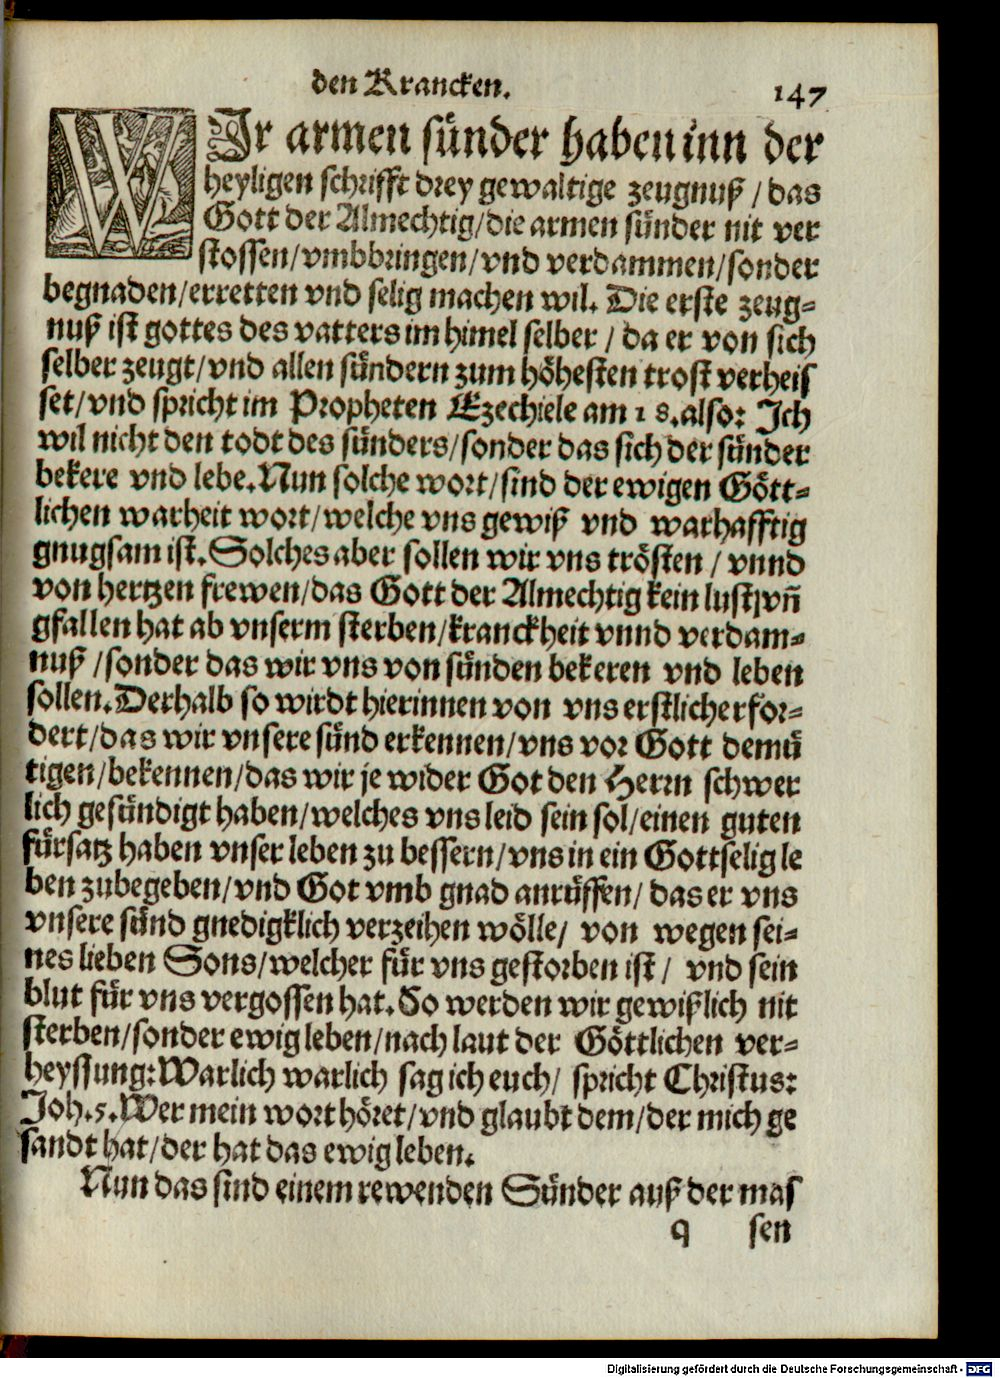 den Krancken. 147
WIr armen sünder haben inn der
heyligen schrifft drey gewaltige zeugnuß / das
Gott der Almechtig/die armen sünder nit ver
stossen/vmbbringen/vnd verdammen/sonder
begnaden/erretten vnd selig machen wil. Die erste zeug-
nuß ist gottes des vatters im himel selber / da er von sich
selber zeugt/vnd allen sündern zum höhesten trost verheis
set/vnd spricht im Propheten Ezechiele am 18.also: Ich
wil nicht den todt des sünders/sonder das sich der sünder
bekere vnd lebe.Nun solche wort/sind der ewigen Gött-
lichen warheit wort/welche vns gewiß vnd warhafftig
gnugsam ist.Solches aber sollen wir vns trösten / vnnd
von hertzen frewen/das Gott der Almechtig kein lust/vñ
gfallen hat ab vnserm sterben/kranckheit vnnd verdam-
nuß /sonder das wir vns von sünden bekeren vnd leben
sollen.Derhalb so wirdt hierinnen von vns erstlich erfor-
dert/das wir vnsere sünd erkennen/vns vor Gott demü
tigen/bekennen/das wir je wider Got den Herrn schwer
lich gesündigt haben/welches vns leid sein sol/einen guten
fürsatz haben vnser leben zu bessern/vns in ein Gottselig le
ben zubegeben/vnd Got vmb gnad anrüffen/ das er vns
vnsere sünd gnedigklich verzeihen wölle/ von wegen sei-
nes lieben Sons/welcher für vns gestorben ist / vnd sein
blut für vns vergossen hat.So werden wir gewißlich nit
sterben/sonder ewig leben/nach laut der Göttlichen ver-
heyssung:Warlich warlich sag ich euch/ spricht Christus:
Joh.5.Wer mein wort höret/vnd glaubt dem/der mich ge
sandt hat/der hat das ewig leben.
Nun das sind einem rewenden Sünder auß der mas
q sen
Digitalisierung gefördert durch die Deutsche Forschungsgemeinschaft - DFG